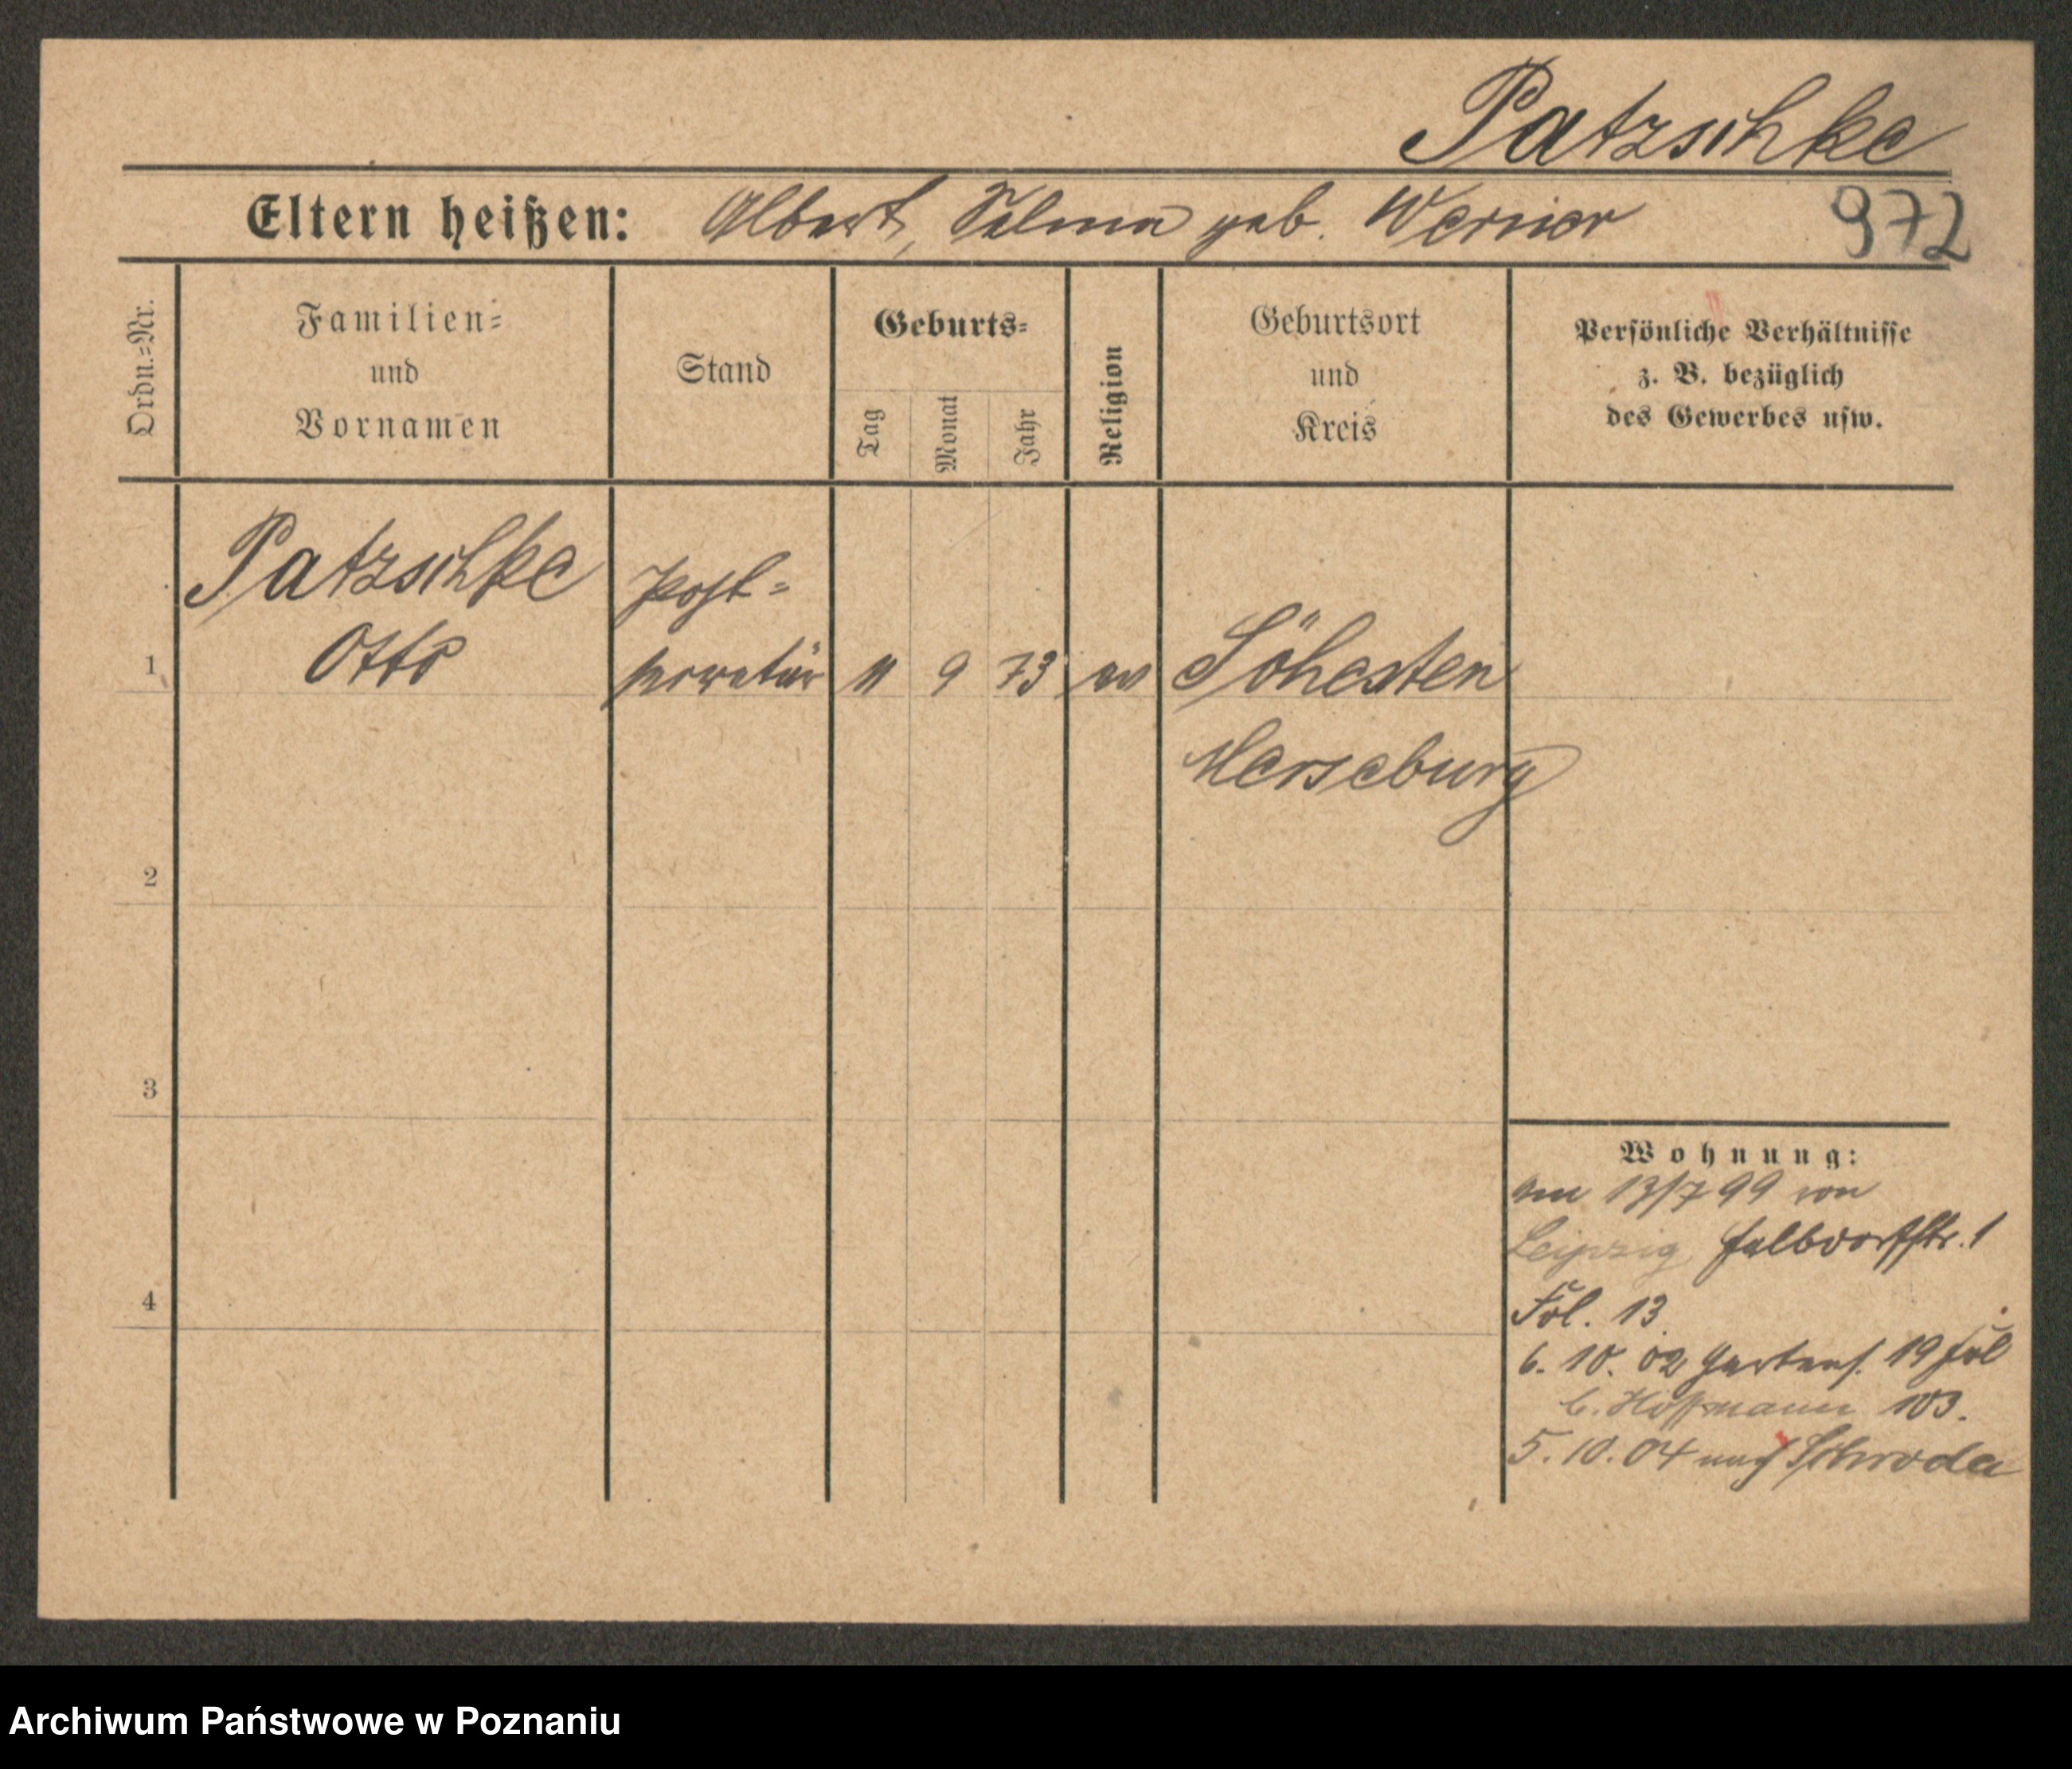 Patzschke
Eltern heißen: Albert, Selma geb. Werner 972
Ordn.=Nr.
Familien=
und
Vornamen
Stand
Geburts=
Tag
Monat
Jahr
Religion
Geburtsort
und
Kreis
Persönliche Verhältnisse
z. B. bezüglich
des Gewerbes usw.
Patzschke
Otto
Post=
sekretär
1 11 9 73 ev Söhesten
Merseburg
2
3
4
Wohnung:
am 13/7 99 von
Leipzig, Halbdorfstr. 1
Fol. 13.
6. 10. 02 Gartenst. 19 Fol
b. Hoffmann 103.
5. 10. 04 nach Schroda
Archiwum Państwowe w Poznaniu